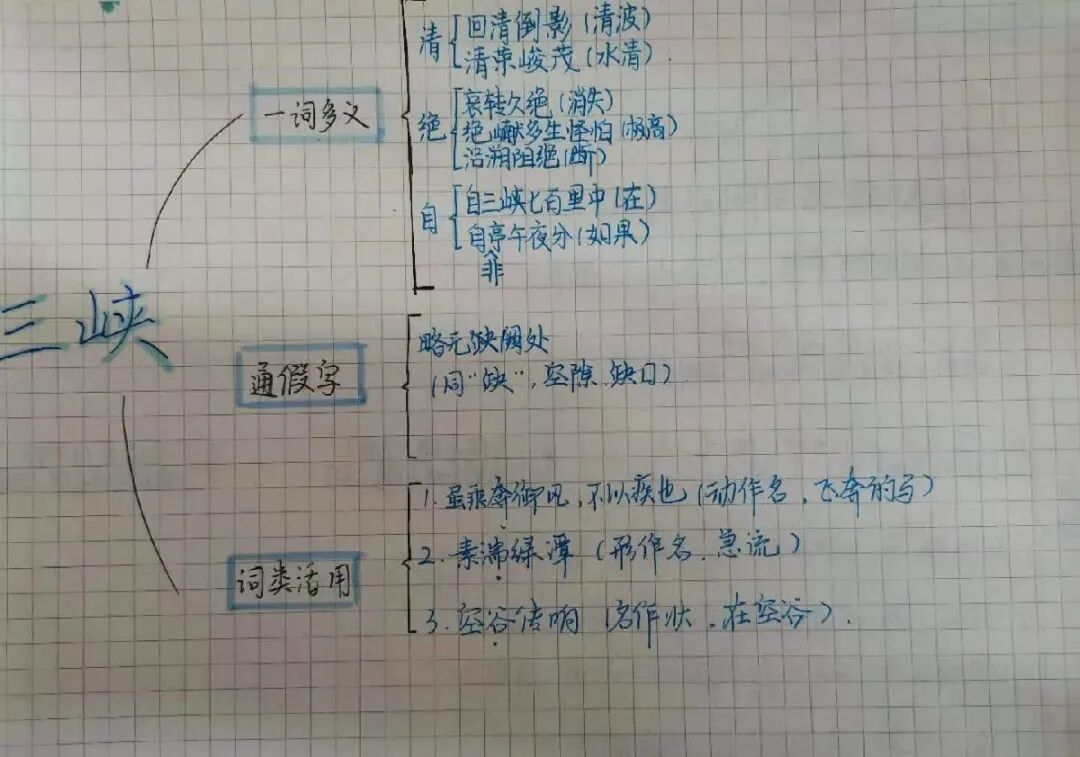 三峡
一词多义
清
回清倒影(清波)
清荣峻茂(水清)
绝
哀转久绝(消失)
绝巘多生怪怕(极高)
沿溯阻绝(断)
自
自三峡七百里中(在)
自亭午夜分(如果)
非
通假字
略无缺阙处
(同“缺”,空隙、缺口)
词类活用
1.虽乘奔御风,不以疾也(动作名,飞奔的马)
2.素湍绿潭(形作名,急流)
3.空谷传响(名作状,在空谷).